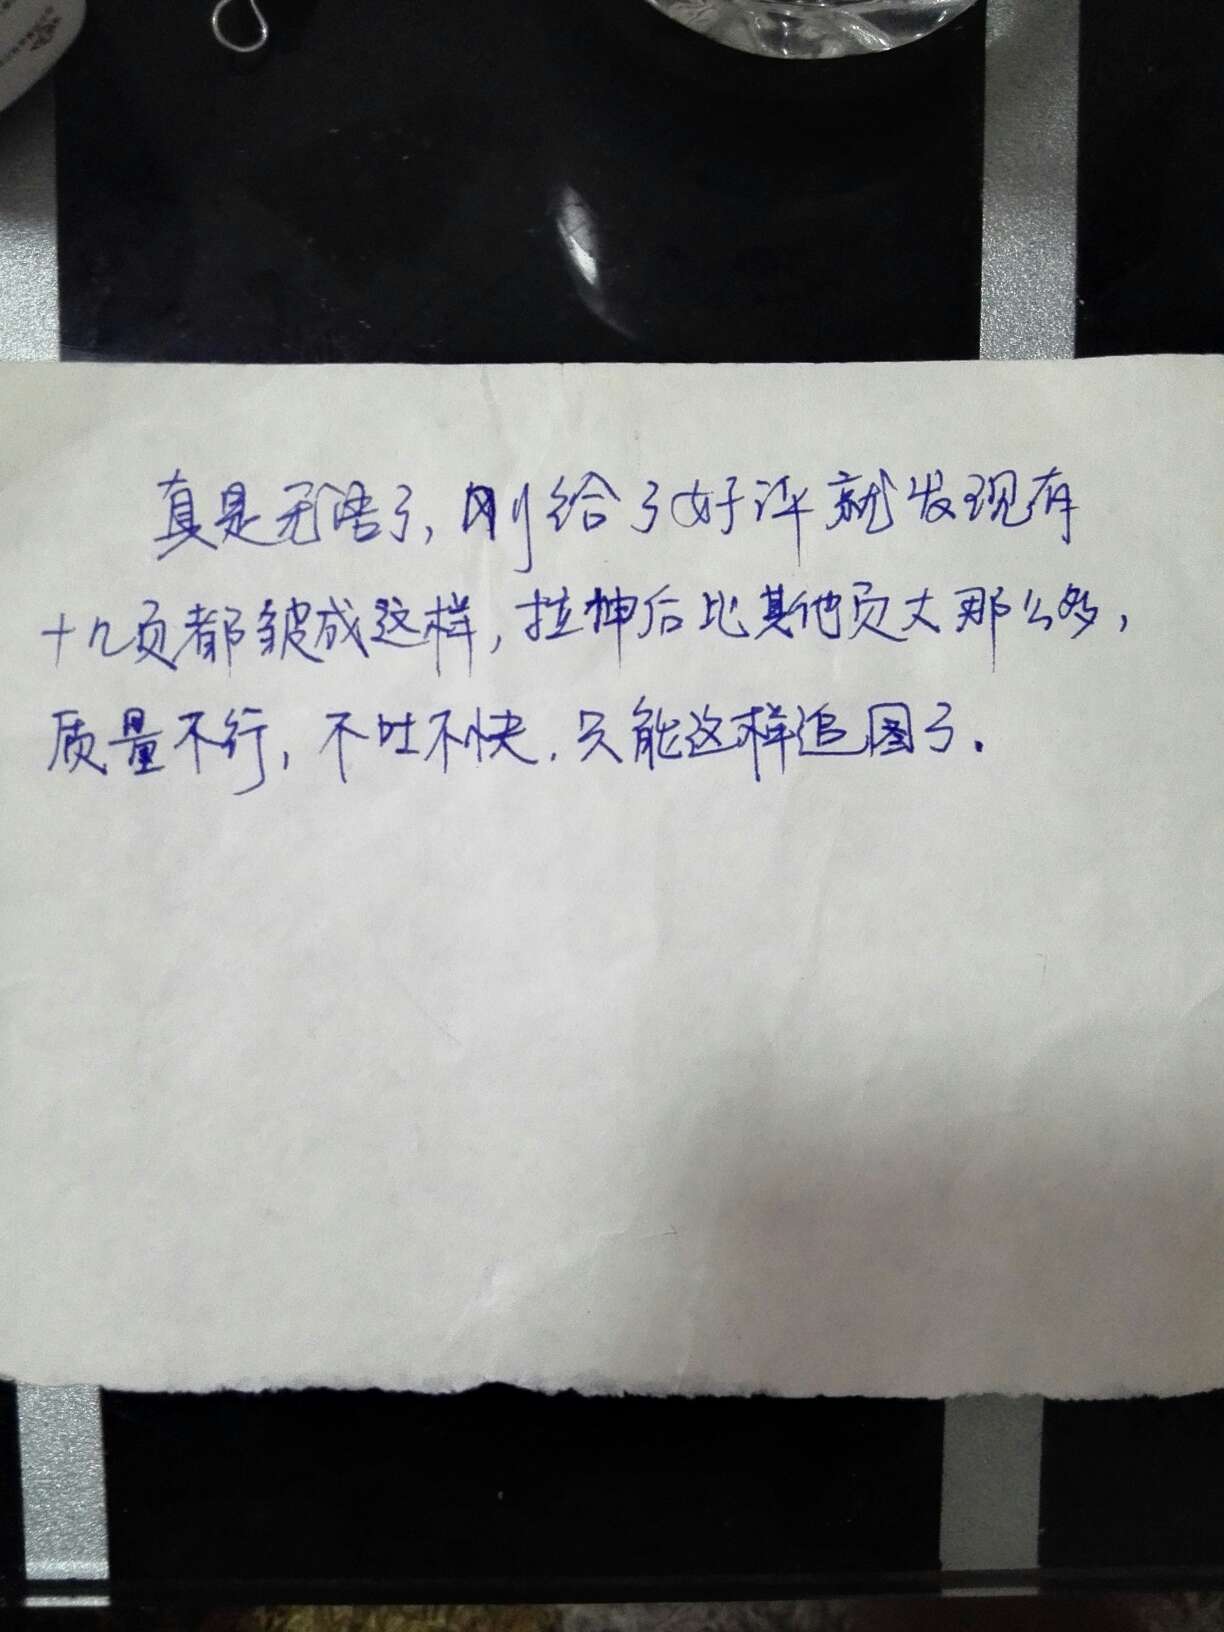 真是无语了,刚给了好评就发现有
十几页都皱成这样,拉伸后比其他页大那么多,
质量不行,不吐不快.只能这样追图了.